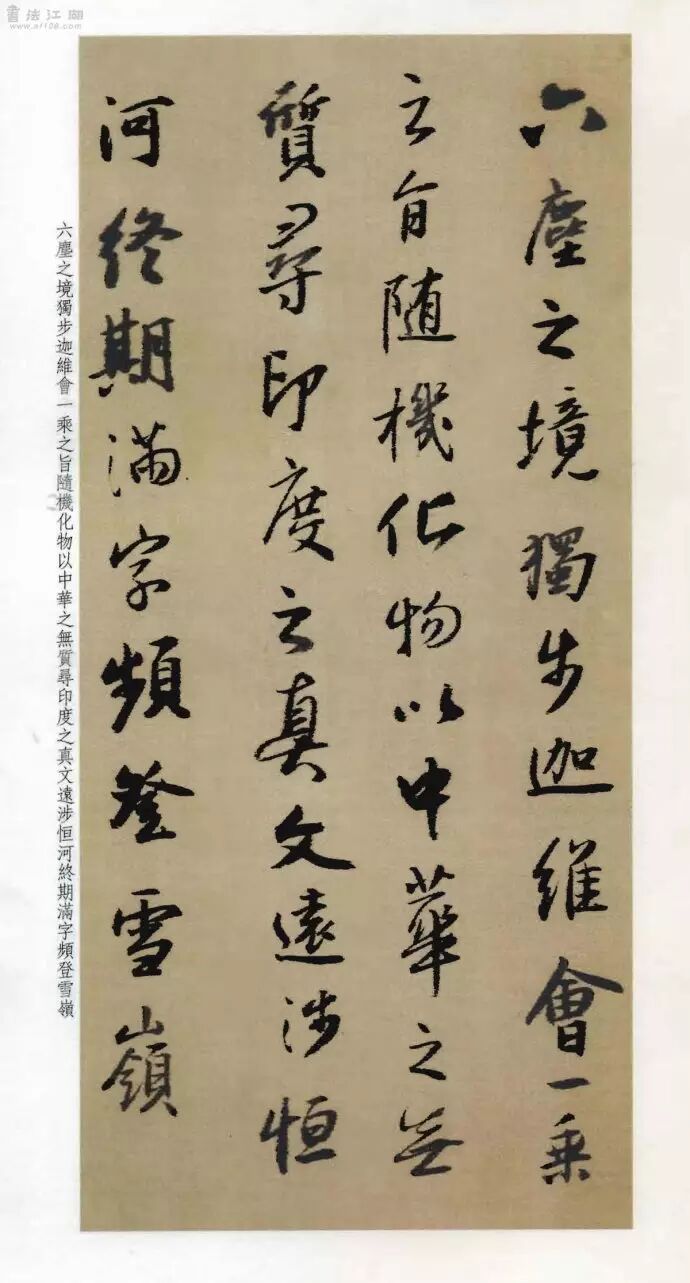 書法江湖
www.sf108.com
六塵之境獨步迦維會一乘
之旨随機化物以中華之無
質尋印度之真文遠涉恒
河終期滿字頻登雪嶺
六塵之境獨步迦維會一乘之旨隨機化物以中華之無質尋印度之真文遠涉恒河終期滿字頻登雪嶺